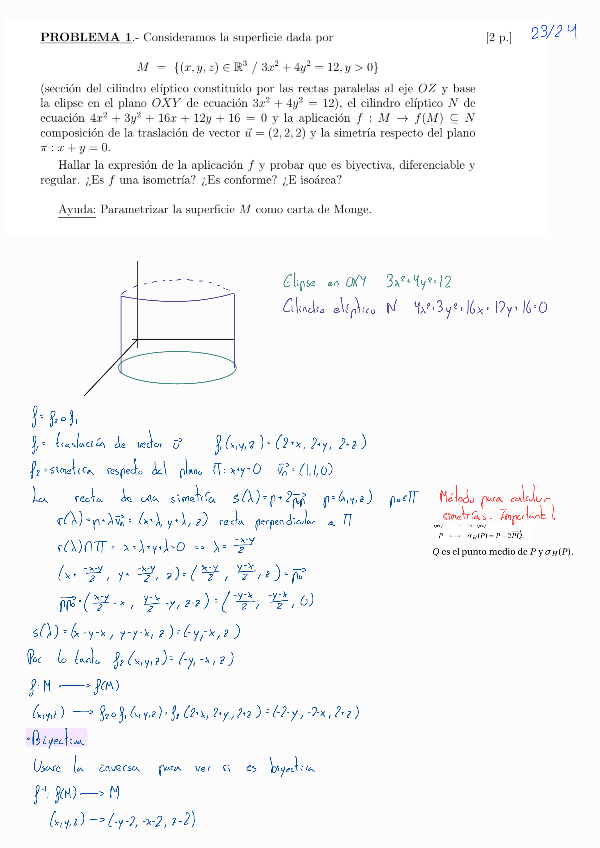 PROBLEMA 1.- Consideramos la superficie dada por [2 p.]
23/24
M = {(x, y, z) ∈ ℝ³ / 3x² + 4y² = 12, y > 0}
(sección del cilindro elíptico constituido por las rectas paralelas al eje OZ y base
la elipse en el plano OXY de ecuación 3x² + 4y² = 12), el cilindro elíptico N de
ecuación 4x² + 3y² + 16x + 12y + 16 = 0 y la aplicación f : M → f(M) ⊆ N
composición de la traslación de vector u⃗ = (2, 2, 2) y la simetría respecto del plano
π : x + y = 0.
Hallar la expresión de la aplicación f y probar que es biyectiva, diferenciable y
regular. ¿Es f una isometría? ¿Es conforme? ¿E isoárea?
Ayuda: Parametrizar la superficie M como carta de Monge.
Elipse en OXY 3x²+4y²=12
Cilindro elíptico N 4x²+3y²+16x+12y+16=0
f = f₂ o f₁
f₁ = traslación de vector u⃗ f₁(x,y,z) = (2+x, 2+y, 2+z)
f₂ = simetria respecto del plano Π: x+y=0 v⃗n = (1,1,0)
La recta de una simetría s(λ) = p + 2pp₀ p=(x,y,z) p₀∈Π
r(λ) = p + λv⃗n = (x+λ, y+λ, z) recta perpendicular a Π
r(λ)∩Π = x+λ+y+λ=0 => λ = -x-y/2
(x + -x-y/2, y + -x-y/2, z) = (x-y/2, y-x/2, z) = p₀
pp₀ = (x-y/2 - x, y-x/2 - y, z-z) = (-y-x/2, -y-x/2, 0)
s(λ) = (x-y-x, y-y-x, z) = (-y, -x, z)
Por lo tanto f₂(x,y,z) = (-y, -x, z)
f: M → f(M)
(x,y,z) → f₂ o f₁(x,y,z) = f₂(2+x, 2+y, 2+z) = (-2-y, -2-x, 2+z)
Método para calcular
simetrías. Importante!
P ⟼ σ_H(P) = P + 2PQ.
Q es el punto medio de P y σ_H(P).
• Biyectiva
Usare la inversa para ver si es biyectiva
f⁻¹: f(M) → M
(x,y,z) → (-y-2, -x-2, z-2)